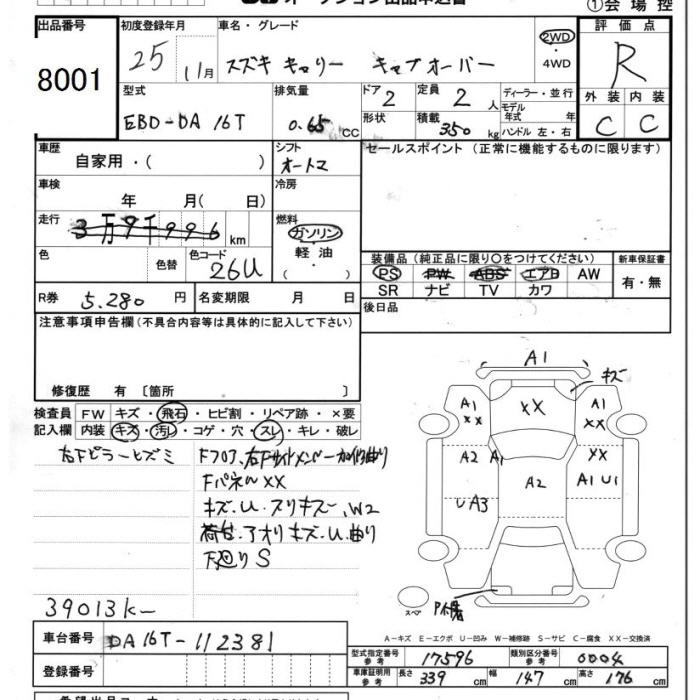 オークション出品申込書
①会場控
出品番号
8001
初度登録年月
25 11月
車名・グレード
スズキ キャリー キャブオーバー
2WD
・4WD
評価点
R
外装 内装
C C
型式
EBD-DA16T
排気量
0.65 CC
ドア
2
定員
2 人
形状
積載
350 kg
ディーラー・並行
モデル年式 年
ハンドル 左・右
車歴
自家用・( )
シフト
オートマ
セールスポイント(正常に機能するものに限ります)
車検
年 月( 日)
冷房
走行
3万9千996 km
燃料
ガソリン
軽油
・( )
色
色替
色コード
26U
装備品(純正品に限り○をつけてください)
PS PW ABS エアB AW
SR ナビ TV カワ
新車保証書
有・無
R券 5.280 円
名変期限 月 日
後日品
注意事項申告欄(不具合内容等は具体的に記入して下さい)
修復歴 有〔箇所 〕
検査員
記入欄
FW キズ・飛石・ヒビ割・リペア跡・×要
内装 キズ・汚レ・コゲ・穴・スレ・キレ・破レ
右下ピラーヒズミ
Fフロア、右下サイドメンバー
曲り
Fパネル XX
キズ.U.スリキズ、W2
荷台.アオリ キズ.U.曲り
下廻り S
39013K
A1
キズ
A1
XX
XX
A1
XX
A2
A1
XX
A2
A1 U1
U A3
スペア
A-キズ E-エクボ U-凹み W-補修跡 S-サビ C-腐食 XX-交換済
車台番号
DA16T-112381
登録番号
型式指定番号
参考
17596
類別区分番号
参考
0004
車庫証明用
参考
長さ 339 cm
幅 147 cm
高さ 176 cm